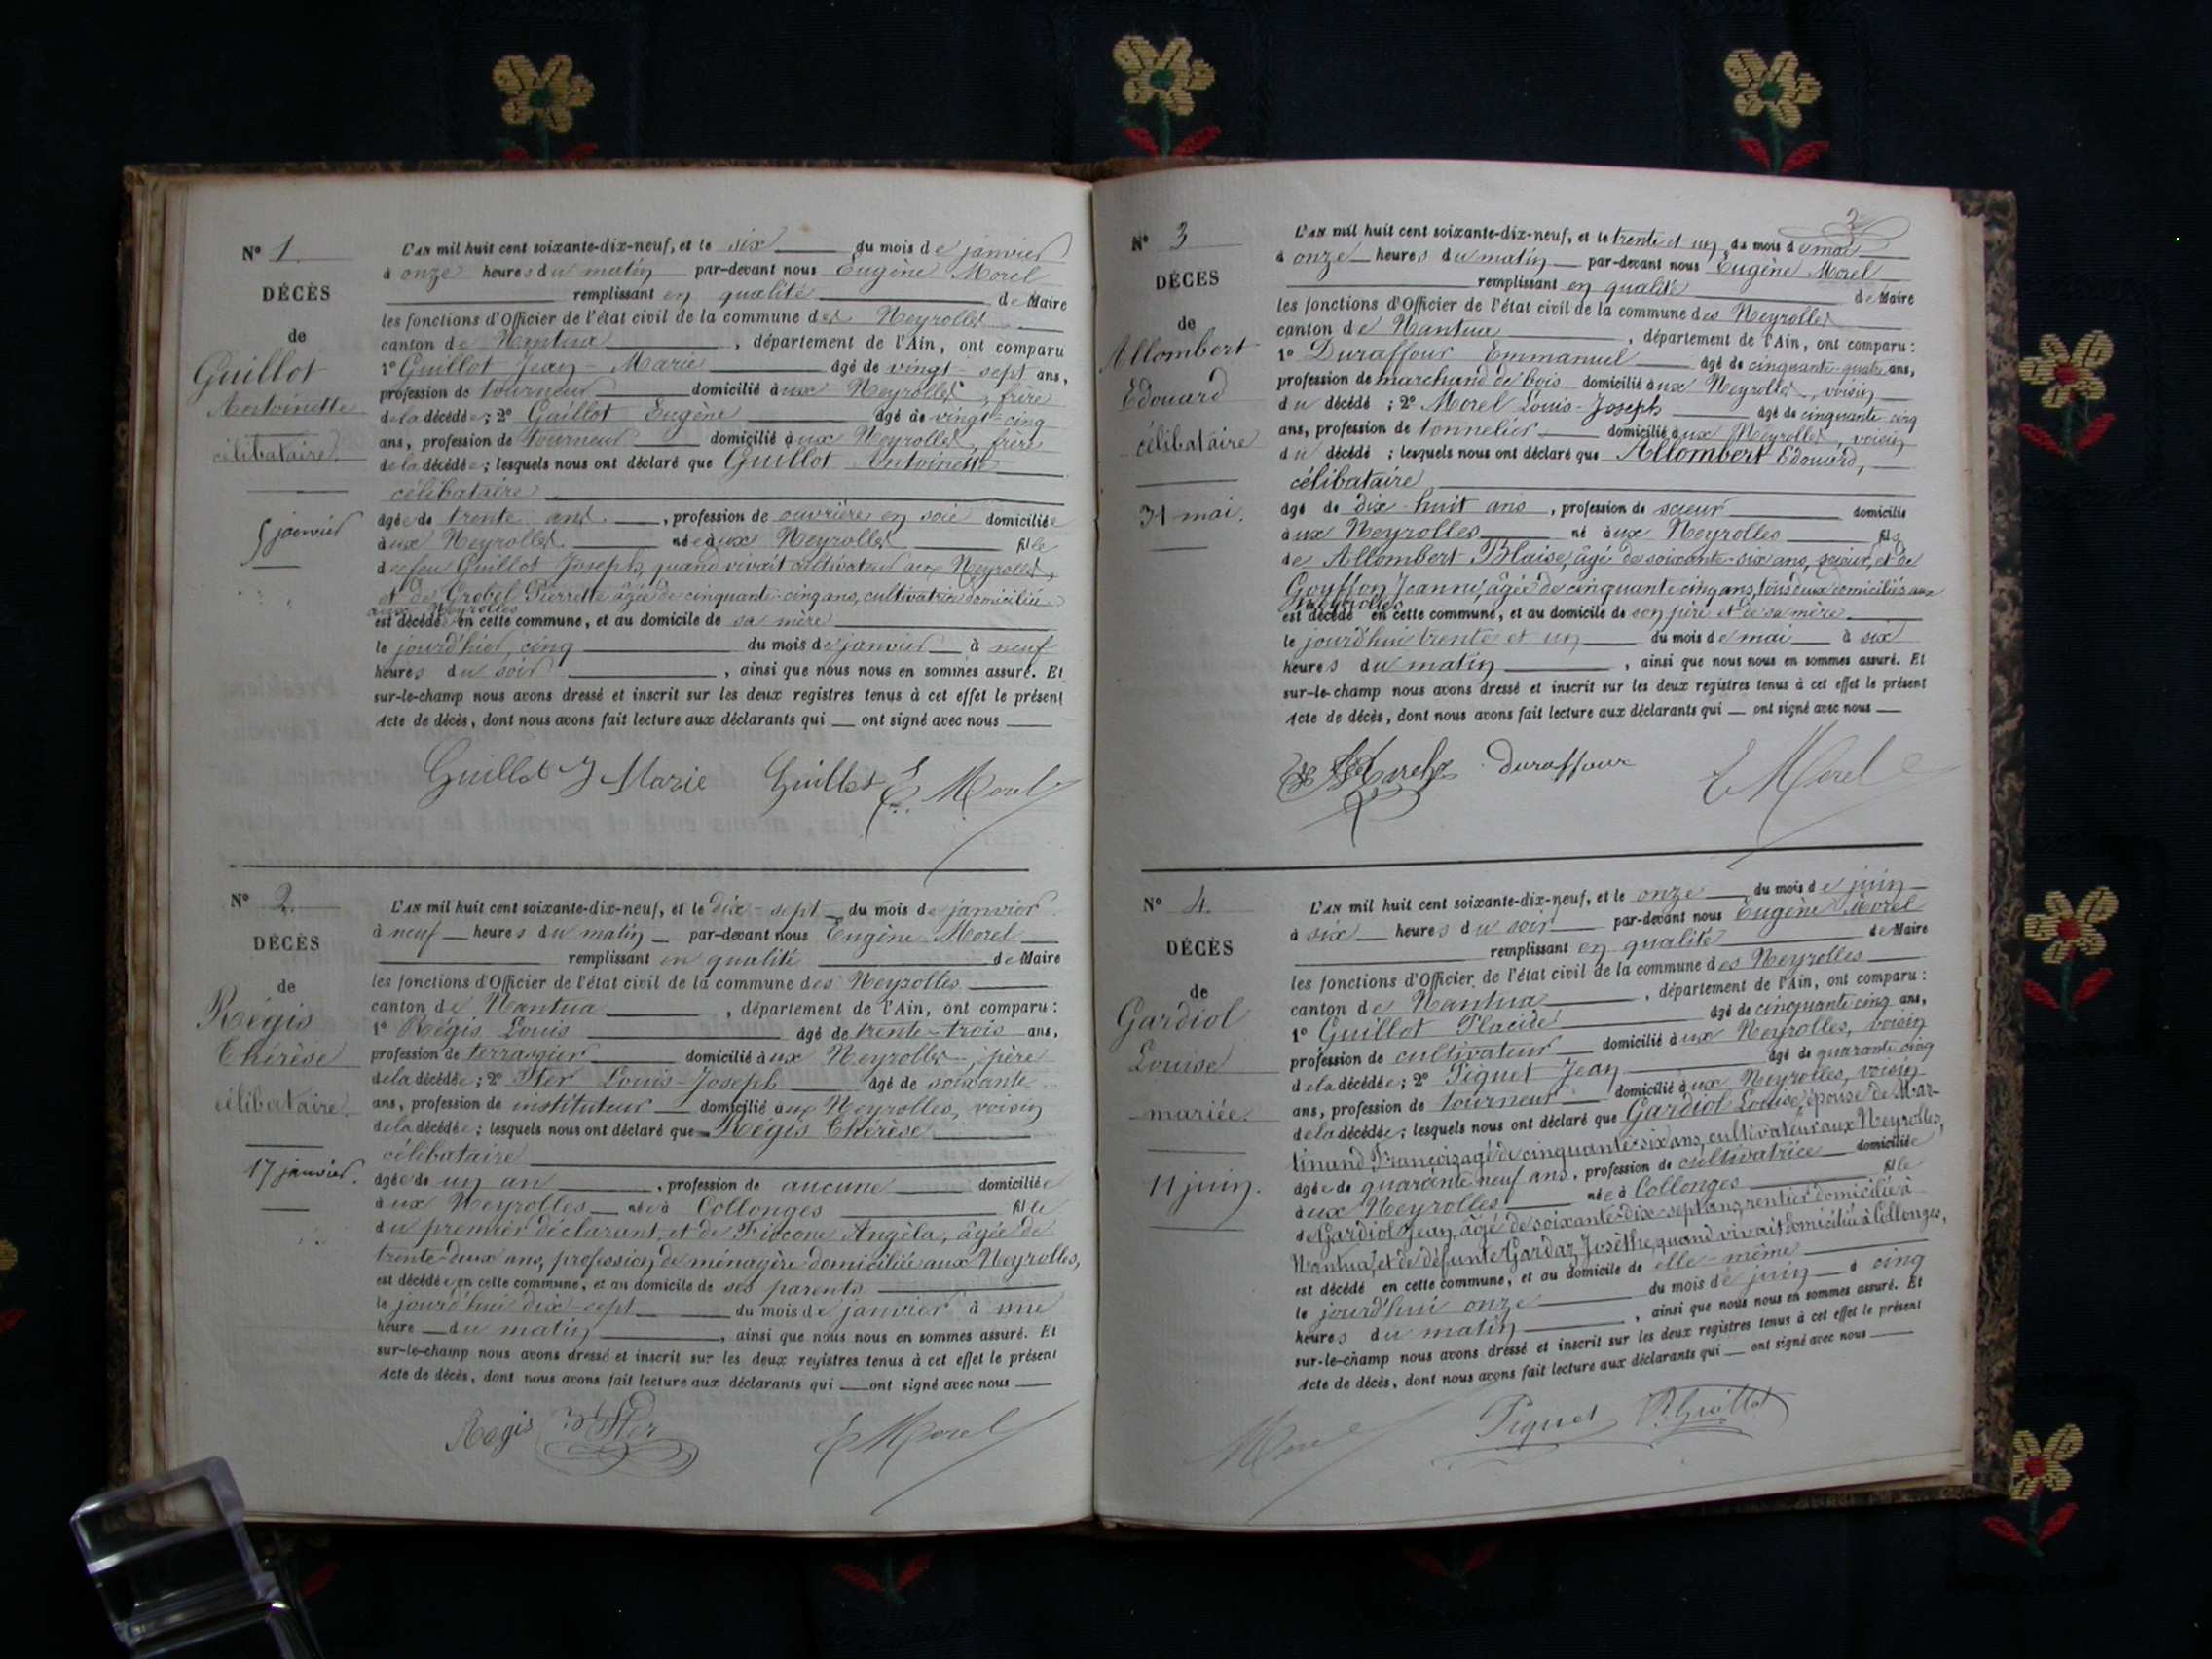 N° 1
DÉCÈS
de
Guillot
Antoinette
célibataire.
5 janvier
L'AN mil huit cent soixante-dix-neuf, et le six du mois de janvier
à onze heures du matin par-devant nous Eugène Morel
remplissant en qualité de Maire
les fonctions d'Officier de l'état civil de la commune des Neyrolles
canton de Nantua, département de l'Ain, ont comparu
1° Guillot Jean-Marie âgé de vingt-sept ans,
profession de tourneur domicilié aux Neyrolles, frère
de la décédée; 2° Guillot Eugène âgé de vingt-cinq
ans, profession de tourneur domicilié aux Neyrolles, frère
de la décédée; lesquels nous ont déclaré que Guillot Antoinette
célibataire
âgée de trente ans, profession de ouvrière en soie domiciliée
aux Neyrolles née aux Neyrolles fille
de feu Guillot Joseph, quand vivait cultivateur aux Neyrolles,
et de Grobel Pierrette âgée de cinquante-cinq ans, cultivatrice domiciliée
aux Neyrolles
est décédée en cette commune, et au domicile de sa mère
le jourd'hier, cinq du mois de janvier à neuf
heures du soir, ainsi que nous nous en sommes assuré. Et
sur-le-champ nous avons dressé et inscrit sur les deux registres tenus à cet effet le présent
Acte de décès, dont nous avons fait lecture aux déclarants qui ont signé avec nous
Guillot J Marie Guillot E. Morel
N° 2.
DÉCÈS
de
Régis
Thérèse
célibataire.
17 janvier.
L'AN mil huit cent soixante-dix-neuf, et le dix-sept du mois de janvier
à neuf heures du matin par-devant nous Eugène Morel
remplissant en qualité de Maire
les fonctions d'Officier de l'état civil de la commune des Neyrolles
canton de Nantua, département de l'Ain, ont comparu :
1° Régis Louis âgé de trente-trois ans,
profession de terrassier domicilié aux Neyrolles, père
de la décédée; 2° Louis-Joseph âgé de soixante
ans, profession de instituteur domicilié aux Neyrolles, voisin
de la décédée; lesquels nous ont déclaré que Régis Thérèse
célibataire
âgée de un an, profession de aucune domiciliée
aux Neyrolles née à Collonges fille
du premier déclarant, et de Angèla, âgée de
trente-deux ans, profession de ménagère domiciliée aux Neyrolles,
est décédée en cette commune, et au domicile de ses parents
le jourd'hui dix-sept du mois de janvier à une
heure du matin, ainsi que nous nous en sommes assuré. Et
sur-le-champ nous avons dressé et inscrit sur les deux registres tenus à cet effet le présent
Acte de décès, dont nous avons fait lecture aux déclarants qui ont signé avec nous
Régis E Morel
2
N° 3
DÉCÈS
de
Allombert
Edouard
célibataire
31 mai.
L'AN mil huit cent soixante-dix-neuf, et le trente et un du mois de mai
à onze heures du matin par-devant nous Eugène Morel
remplissant en qualité de Maire
les fonctions d'Officier de l'état civil de la commune des Neyrolles
canton de Nantua, département de l'Ain, ont comparu :
1° Duraffour Emmanuel âgé de cinquante-quatre ans,
profession de marchand de bois domicilié aux Neyrolles, voisin
du décédé ; 2° Morel Louis-Joseph âgé de cinquante-cinq
ans, profession de tonnelier domicilié aux Neyrolles, voisin
du décédé ; lesquels nous ont déclaré que Allombert Edouard,
célibataire
âgé de dix-huit ans, profession de scieur domicilié
aux Neyrolles né aux Neyrolles fils
de Allombert Blaise, âgé de soixante-six ans, scieur, et de
Goyffon Jeanne, âgée de cinquante cinq ans, tous deux domiciliés aux
Neyrolles
est décédé en cette commune, et au domicile de son père et de sa mère
le jourd'hui trente et un du mois de mai à six
heures du matin, ainsi que nous nous en sommes assuré. Et
sur-le-champ nous avons dressé et inscrit sur les deux registres tenus à cet effet le présent
Acte de décès, dont nous avons fait lecture aux déclarants qui ont signé avec nous
Duraffour E Morel
N° 4.
DÉCÈS
de
Gardiol
Louise
mariée.
11 juin.
L'AN mil huit cent soixante-dix-neuf, et le onze du mois de juin
à six heures du soir par-devant nous Eugène Morel
remplissant en qualité de Maire
les fonctions d'Officier de l'état civil de la commune des Neyrolles
canton de Nantua, département de l'Ain, ont comparu :
1° Guillot Placide âgé de cinquante cinq ans,
profession de cultivateur domicilié aux Neyrolles, voisin
de la décédée; 2° Piquet Jean âgé de quarante cinq
ans, profession de tourneur domicilié aux Neyrolles, voisin
de la décédée; lesquels nous ont déclaré que Gardiol Louise, épouse de Mar-
tinand François âgé de cinquante-six ans, cultivateur aux Neyrolles,
âgée de quarante neuf ans, profession de cultivatrice domiciliée
aux Neyrolles née à Collonges fille
de Gardiol Jean, âgé de soixante-dix-sept ans, rentier domicilié à
Nantua, et de défunte Gardaz Josèthe, quand vivait domiciliée à Collonges,
est décédé en cette commune, et au domicile de elle-même
le jourd'hui onze du mois de juin à cinq
heures du matin, ainsi que nous nous en sommes assuré. Et
sur-le-champ nous avons dressé et inscrit sur les deux registres tenus à cet effet le présent
Acte de décès, dont nous avons fait lecture aux déclarants qui ont signé avec nous
Morel Piquet P. Guillot